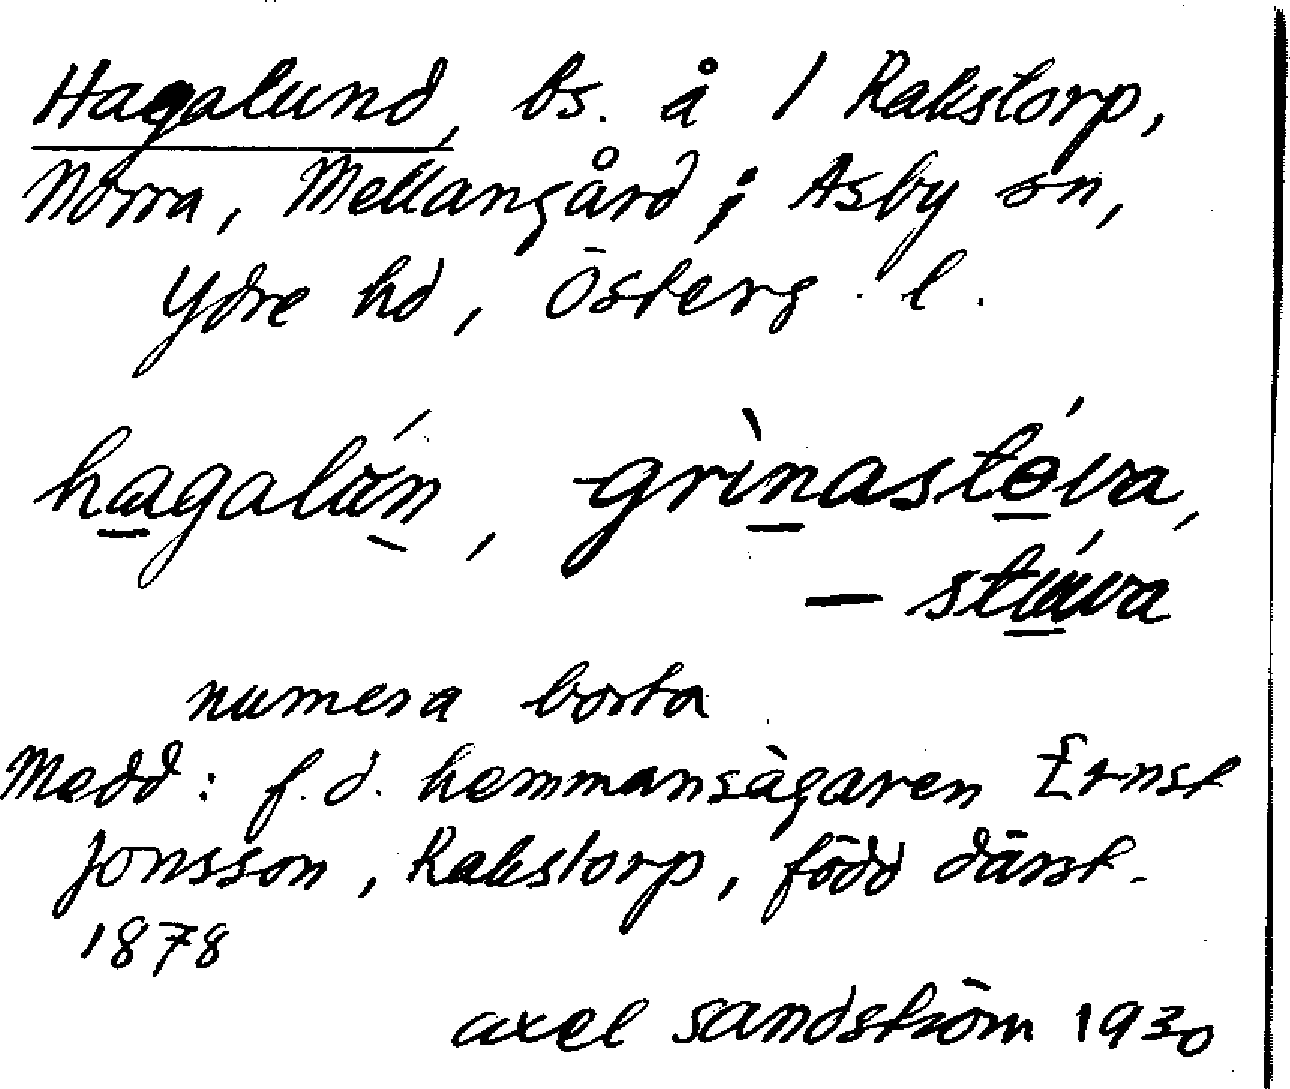 Hagalund, bs. å 1 Rakstorp,
Norra, Mellangård; Asby sn,
Ydre hd, Österg. l.
hagalún, grìnastóva,
— stúva
numera borta
Medd: f.d. hemmansägaren Ernst
Jonsson, Rakstorp, född därst.
1878
axel sandström 1930